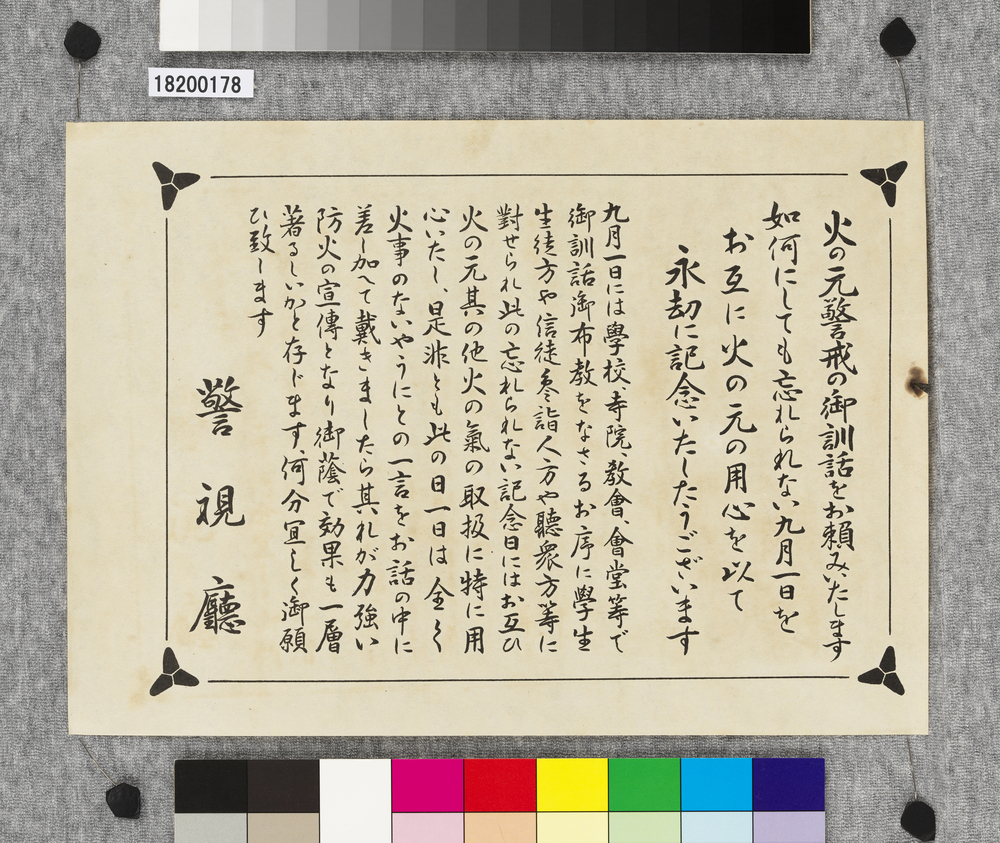 18200178
火の元警戒の御訓話をお頼みいたします
如何にしても忘れられない九月一日を
お互に火の元の用心を以て
永劫に記念いたしたうございます
九月一日には學校、寺院、教會、會堂等で
御訓話御布教をなさるお序に學生
生徒方や信徒參詣人方や聽衆方等に
對せられ此の忘れられない記念日にはお互ひ
火の元其の他火の氣の取扱に特に用
心いたし、是非とも此の日一日は全く
火事のないやうにとの一言をお話の中に
差し加へて戴きましたら其れが力強い
防火の宣傳となり御蔭で効果も一層
著るしいかと存じます、何分宜しく御願
ひ致します
警視廳